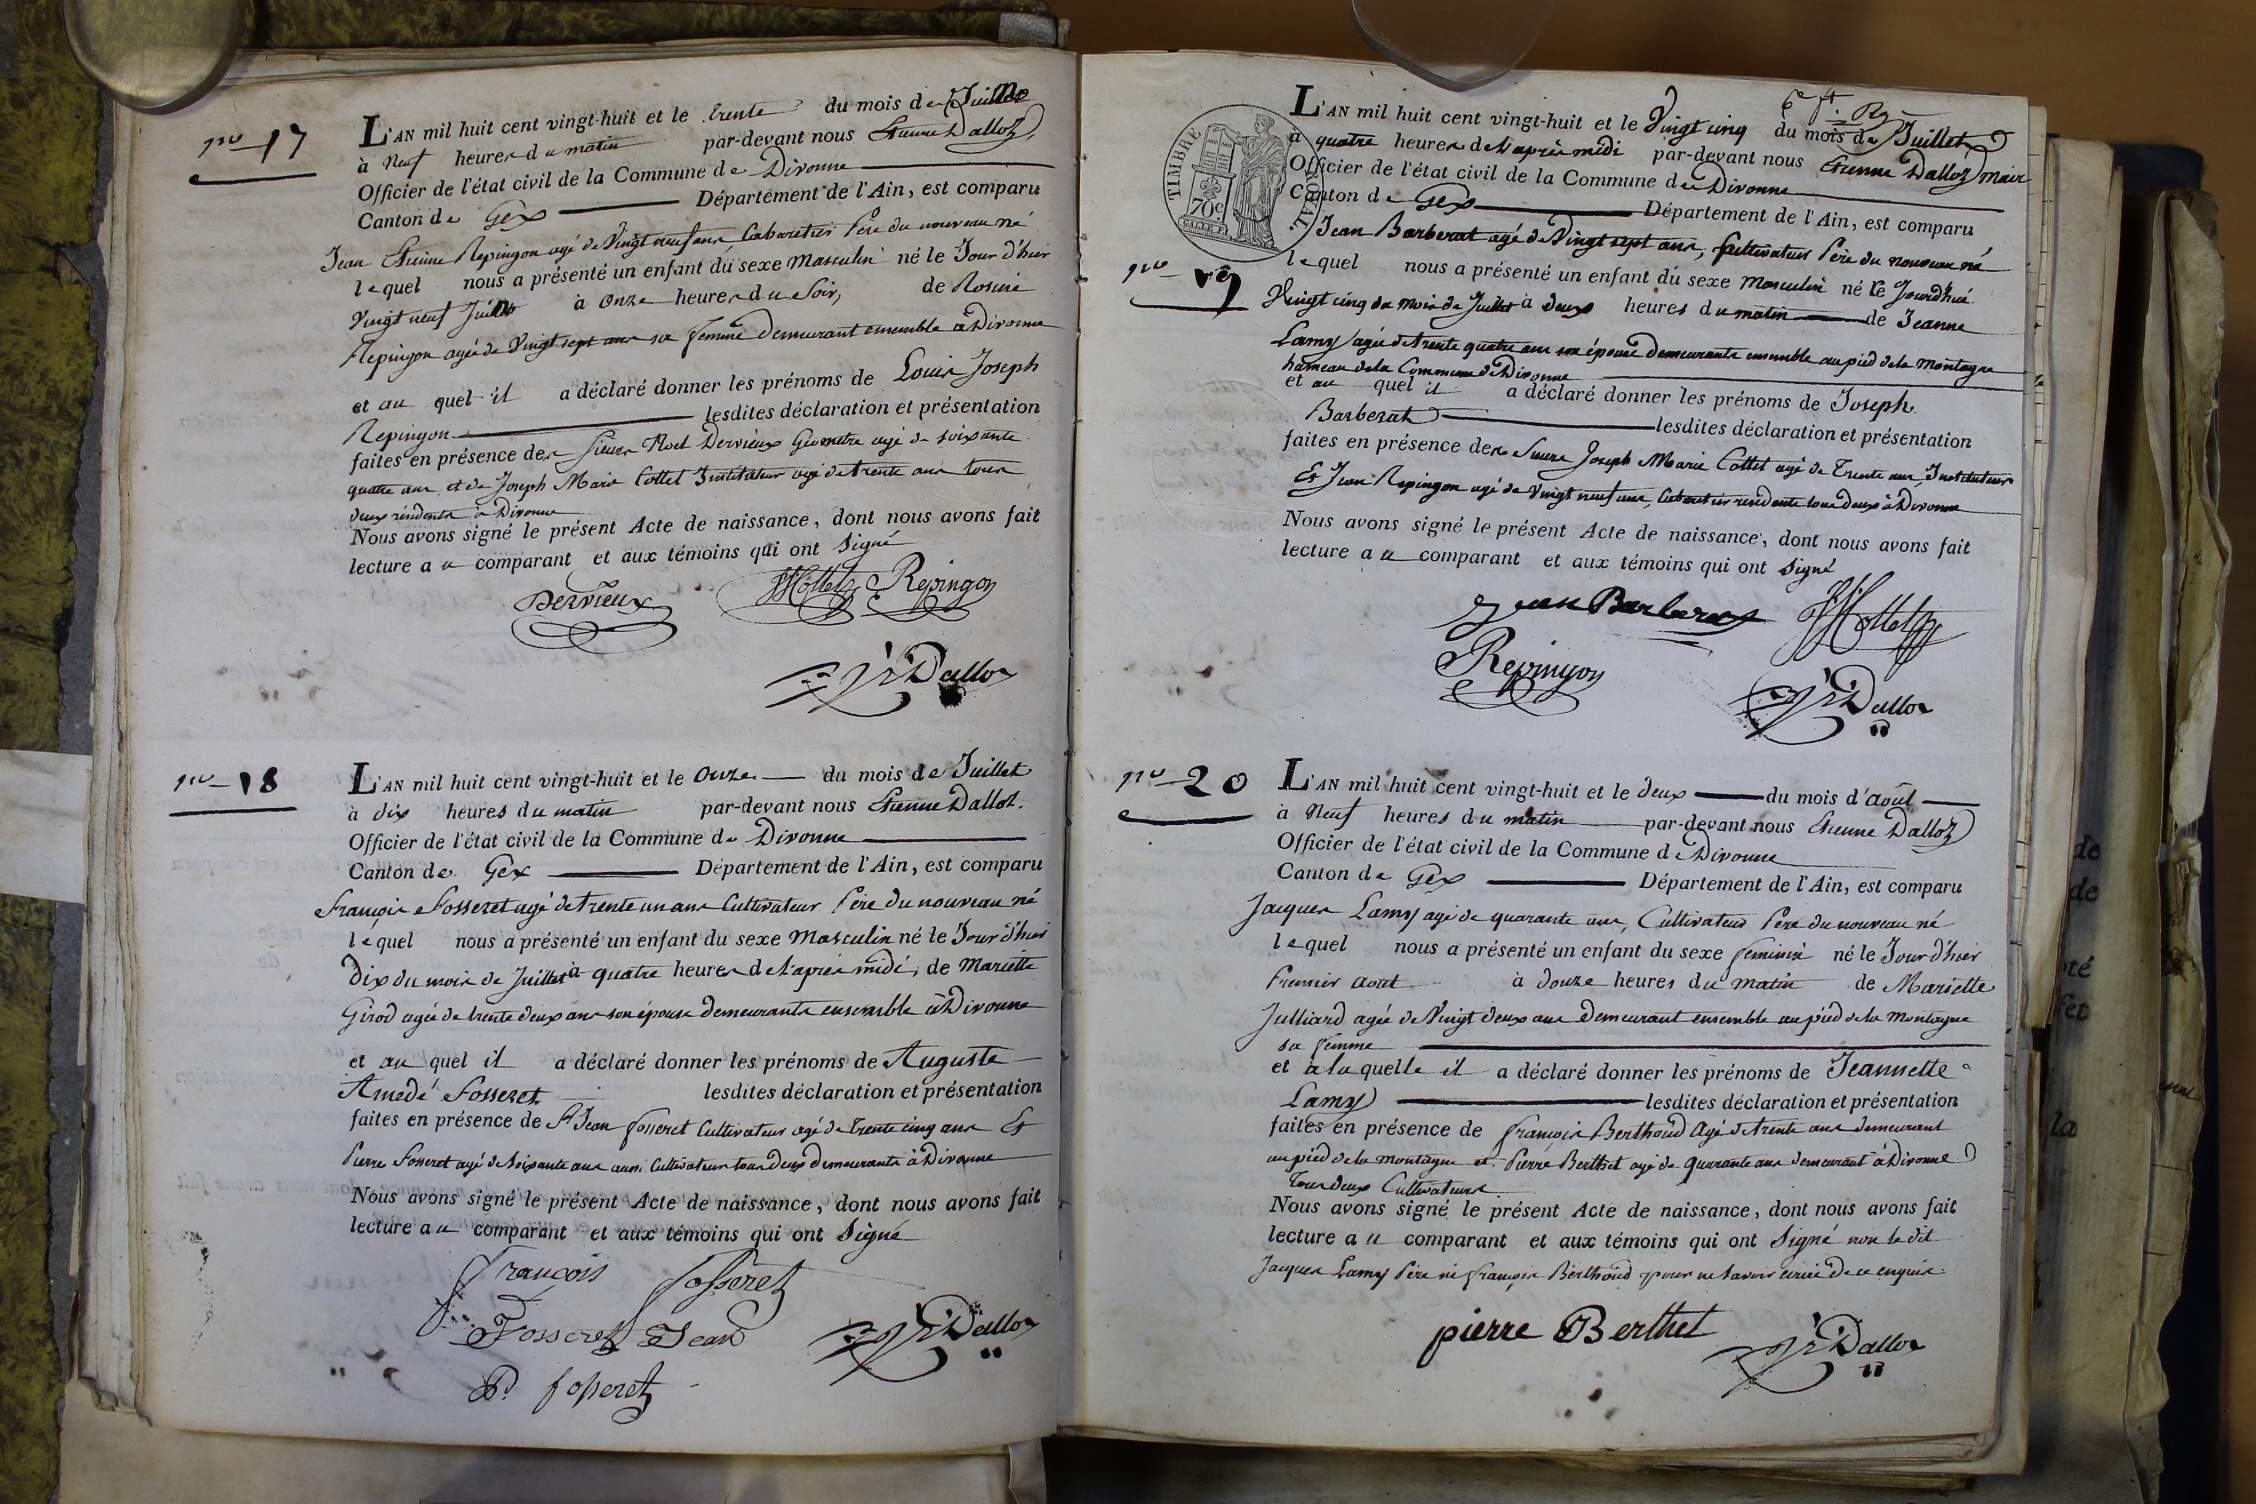 nº 17
L'AN mil huit cent vingt-huit et le trente du mois de Juillet
à Neuf heures du matin par-devant nous Etienne Dalloz
Officier de l'état civil de la Commune de Divonne
Canton de Gex Département de l'Ain, est comparu
Jean Etienne Repingon agé de Vingt neuf ans Cabaretier Père du nouveau né
lequel nous a présenté un enfant du sexe Masculin né le Jour d'hier
Vingt neuf Juillet à onze heures du Soir, de Rosine
Repingon agée de Vingt sept ans sa femme Demeurant ensemble à Divonne
et au quel il a déclaré donner les prénoms de Louis Joseph
Repingon lesdites déclaration et présentation
faites en présence des sieurs Noel Dervieux Géometre agé de soixante
quatre ans et de Joseph Marie Collet Instituteur agé de trente ans tous
deux résidents à Divonne
Nous avons signé le présent Acte de naissance, dont nous avons fait
lecture au comparant et aux témoins qui ont Signé
Dervieux JMCollet Repingon
Dalloz
nº 18
L'AN mil huit cent vingt-huit et le onze du mois de Juillet
à dix heures du matin par-devant nous Etienne Dalloz.
Officier de l'état civil de la Commune de Divonne
Canton de Gex Département de l'Ain, est comparu
François Fosseret agé de trente un ans Cultivateur Père du nouveau né
lequel nous a présenté un enfant du sexe Masculin né le Jour d'hier
Dix du mois de Juillet à quatre heures de l'après midi, de Mariette
Girod agée de trente deux ans son épouse demeurants ensemble à Divonne
et au quel il a déclaré donner les prénoms de Auguste
Amedé Fosseret lesdites déclaration et présentation
faites en présence de Sr Jean fosseret Cultivateur agé de trente cinq ans Et
Pierre Fosseret agé de Soixante ans aussi Cultivateur tous deux demeurants à Divonne
Nous avons signé le présent Acte de naissance, dont nous avons fait
lecture au comparant et aux témoins qui ont Signé
François fosseret
Fosseret Jean Dalloz
P. fosseret
TIMBRE ROYAL
70c
L'AN mil huit cent vingt-huit et le Vingt cinq du mois de Juillet
à quatre heures de l'après midi par-devant nous Etienne Dalloz Maire
Officier de l'état civil de la Commune de Divonne
Canton de Gex Département de l'Ain, est comparu
Jean Barberat agé de Vingt sept ans, Cultivateur Père du nouveau né
nº 19
lequel nous a présenté un enfant du sexe Masculin né le Jourd'hui
Vingt cinq du mois de Juillet à deux heures du matin de Jeanne
Lamy agée de trente quatre ans son épouse demeurants ensemble au pied de la Montagne
hameau de la Commune de Divonne
et au quel il a déclaré donner les prénoms de Joseph
Barberat lesdites déclaration et présentation
faites en présence des Sieurs Joseph Marie Collet agé de Trente ans, Instituteur
Et Jean Repingon agé de Vingt neuf ans, Cabaretier résidents tous deux à Divonne
Nous avons signé le présent Acte de naissance, dont nous avons fait
lecture au comparant et aux témoins qui ont Signé
Jean Barberat JMCollet
Repingon
Dalloz
nº 20
L'AN mil huit cent vingt-huit et le deux du mois d'août
à Neuf heures du matin par-devant nous Etienne Dalloz
Officier de l'état civil de la Commune de Divonne
Canton de Gex Département de l'Ain, est comparu
Jacques Lamy agé de quarante ans, Cultivateur Père du nouveau né
lequel nous a présenté un enfant du sexe feminin né le Jour d'hier
Premier août à douze heures du matin de Mariette
Julliard agée de Vingt deux ans demeurant ensemble au pied de la Montagne
sa femme
et à la quelle il a déclaré donner les prénoms de Jeannette
Lamy lesdites déclaration et présentation
faites en présence de François Berthoud Agé de trente ans demeurant
au pied de la montagne et Pierre Berthet agé de Quarante ans demeurant à Divonne
Tous deux Cultivateurs
Nous avons signé le présent Acte de naissance, dont nous avons fait
lecture au comparant et aux témoins qui ont Signé non le dit
Jacques Lamy Père ni François Berthoud pour ne savoir écrire de ce enquis.
pierre Berthet Dalloz